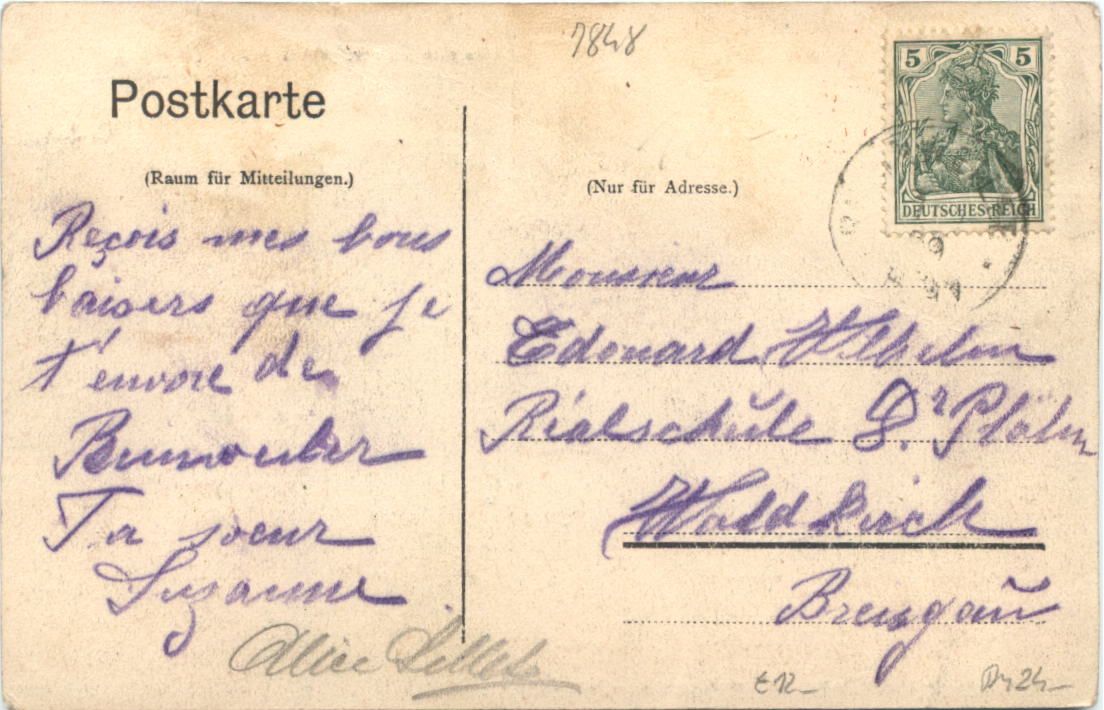 7848
Postkarte
(Raum für Mitteilungen.)
Reçois mes bons
baisers que je
t'envoie de
Ta soeur
Suzanne
Alice
(Nur für Adresse.)
5 5
DEUTSCHES REICH
Monsieur
Edouard Wilhelm
Realschule Dr Plähn
Waldkirch
Breisgaŭ
€12-